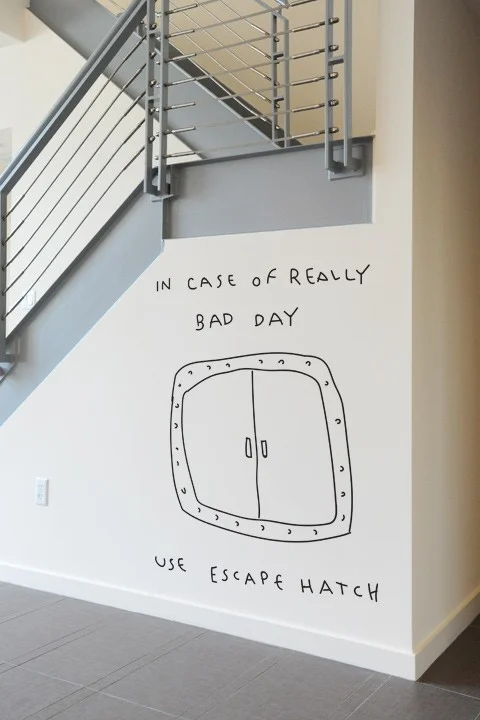 IN CASE OF REALLY
BAD DAY
USE ESCAPE HATCH